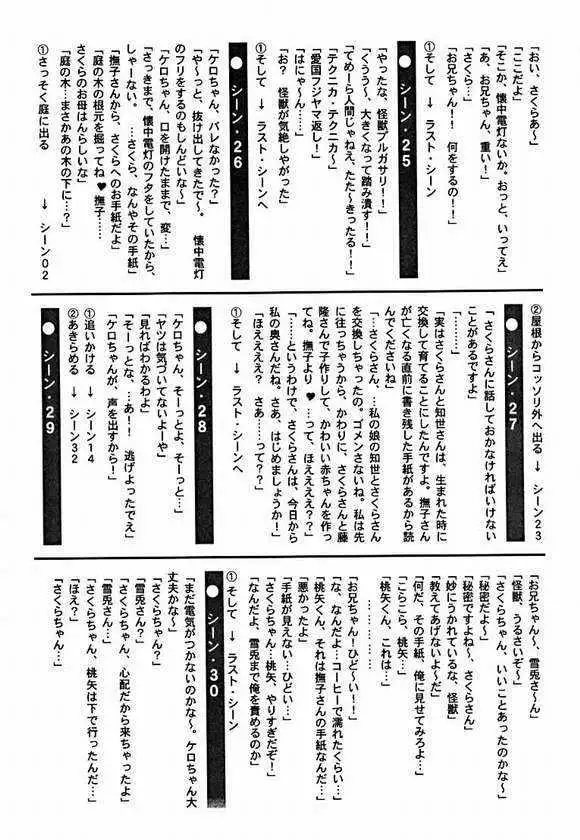 「おい、さくらあ〜」
「ここだよ」
「そこか、懐中電灯ないか。おっと、いってえ」
「あ、お兄ちゃん、重い!」
「さくら…」
「お兄ちゃん!! 何をするの!!」
①そして → ラスト・シーン
●シーン・25
「やったな、怪獣ブルガサリ!!」
「くうう〜、大きくなって踏み潰す!!」
「てめーら人間じゃねえ、たた〜きったる!!」
「テクニカ・テクニカ〜」
「愛国フジヤマ返し!」
「はにゃ〜ん……」
「お? 怪獣が気絶しやがった」
①そして → ラスト・シーンへ
●シーン・26
「ケロちゃん、バレなかった?」
「や〜っと、抜け出してきたで〜。 懐中電灯
のフリをするのもしんどいな〜」
「ケロちゃん、口を開けたままで、変…」
「さっきまで、懐中電灯のフタをしていたから、
しゃーない。 …さくら、なんやその手紙」
「撫子さんから、さくらへのお手紙だよ」
「庭の木の根元を掘ってね♥撫子……
さくらのお母はんらしいな」
「庭の木…まさかあの木の下に…?」
①さっそく庭に出る → シーン02
②屋根からコッソリ外へ出る → シーン23
●シーン・27
「さくらさんに話しておかなければいけない
ことがあるですよ」
「………」
「実はさくらさんと知世さんは、生まれた時に
交換して育てることにしたんですよ。撫子さん
が亡くなる直前に書き残した手紙があるから読
んでくださいね」
①そして → ラスト・シーンへ
●シーン・28
「ケロちゃん、そーっとよ、そーっと…」
「ヤツは気づいてないよーや」
「見ればわかるわよ」
「そーっとな、…あ!! 逃げよったでえ」
「ケロちゃんが、声を出すから!」
①追いかける → シーン14
②あきらめる → シーン32
●シーン・29
「お兄ちゃん〜、雪兎さ〜ん」
「怪獣、うるさいぞ〜」
「さくらちゃん、いいことあったのかな〜」
「秘密だよ〜」
「秘密ですよね〜、さくらさん」
「妙にうかれているな、怪獣」
「教えてあげないよ〜だ」
「何だ、その手紙、俺に見せてみろよ…」
「こらこら、桃矢」
「桃矢くん、これは…」
「お兄ちゃん!ひど〜い!!」
「な、なんだよ…コーヒーで濡れたくらい…」
「桃矢くん、それは撫子さんの手紙なんだ…」
「悪かったよ」
「手紙が見えない…ひどい…」
「さくらちゃん…桃矢、やりすぎだぞ!」
「なんだよ、雪兎まで俺を責めるのか」
①そして → ラスト・シーン
●シーン・30
「まだ電気がつかないのかな〜。ケロちゃん大
丈夫かな〜」
「さくらちゃん?」
「雪兎さん?」
「さくらちゃん、心配だから来ちゃったよ」
「雪兎さん…」
「さくらちゃん、桃矢は下で行ったんだ…」
「ほえ?」
「さくらちゃん…」